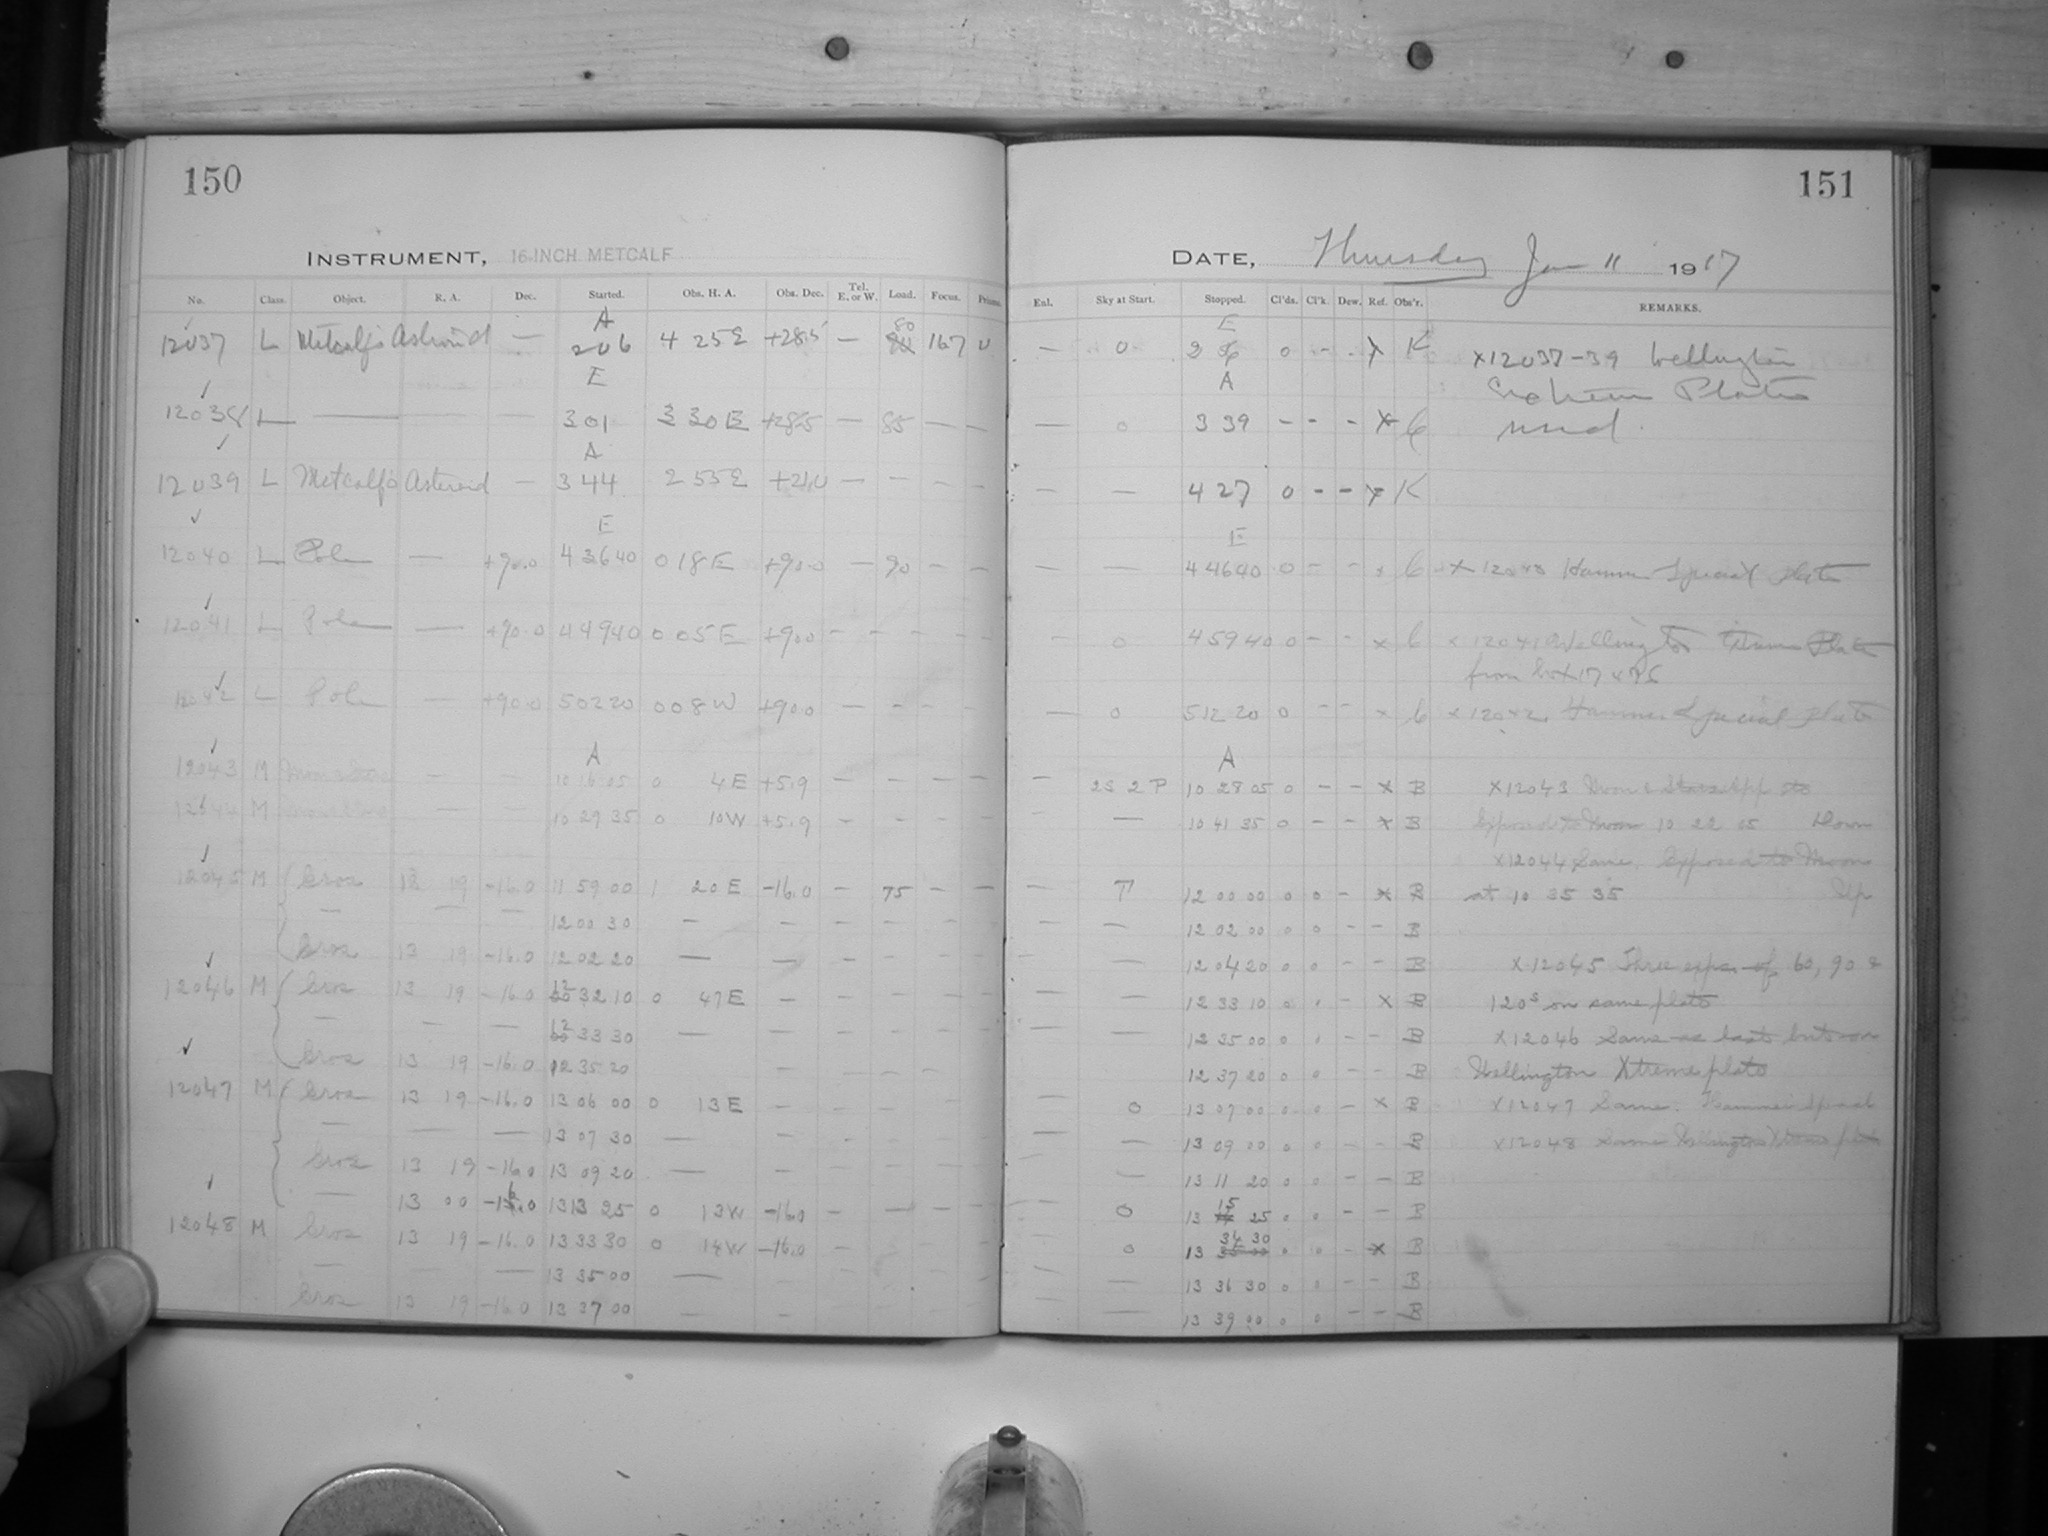 150
INSTRUMENT, 16-INCH METCALF
No. Class. Object. R. A. Dec. Started. Obs. H. A. Obs. Dec. Tel. E. or W. Load. Focus. Prisms.
A
12037 L Metcalf's Asteroid — 206 4 25 E +28.5 — 80 167 0
E
12038 L — — 301 3 30 E +28.5 — 85 — —
A
12039 L Metcalf's Asteroid — 344 2 55 E +21.0 — — — —
E
12040 L Pole — +90.0 4 36 40 0 18 E +90.0 — 90 — —
12041 L Pole — +90.0 4 49 40 0 05 E +90.0 — — — —
12042 L Pole — +90.0 5 02 20 0 08 W +90.0 — — — —
A
12043 M — — 10 16 05 0 4 E +5.9 — — — —
12044 M — — 10 29 35 0 10 W +5.9 — — — —
12045 M Eros 13 19 -16.0 11 59 00 1 20 E -16.0 — 75 — —
— — — 12 00 30 — — — — — —
Eros 13 19 -16.0 12 02 20 — — — — — —
12046 M Eros 13 19 -16.0 12 32 10 0 47 E — — — — —
— — — 12 33 30 — — — — —
Eros 13 19 -16.0 12 35 20 — — — —
12047 M Eros 13 19 -16.0 13 06 00 0 13 E — — — — —
— — — 13 07 30 — — — — —
Eros 13 19 -16.0 13 09 20 — — — — —
— 13 00 -16.0 13 13 25 0 13 W -16.0 — — — —
12048 M Eros 13 19 -16.0 13 33 30 0 14 W -16.0 — — — —
— — 13 35 00 — — — — —
Eros 13 19 -16.0 13 37 00 — — — — —
151
DATE, Thursday Jan 11 1917
Enl. Sky at Start. Stopped. Cl'ds. Cl'k. Dew. Ref. Obs'r. REMARKS.
E
— 0 2 0 - - x K x12037-39 Wellington
A
Plates
— 0 3 39 - - - x C used.
— — 4 27 0 - - x K
E
— — 4 46 40 0 - - x C x 12040 Hammer Special Plate
— 0 4 59 40 0 - - x C x 12041 Wellington Xtreme Plate
from box
— 0 5 12 20 0 - - x C x 12042 Hammer Special Plate
A
— 2S 2P 10 28 05 0 - - x B x12043 Moon & Stars
— — 10 41 35 0 - - x B Exposed to Moon 10 22 05 Down
x12044 Same. Exposed to Moon
— 12 00 00 0 0 - x B at 10 35 35 Up
— — 12 02 00 0 0 - - B
— — 12 04 20 0 0 - - B x12045 Three exps of 60, 90 &
— — 12 33 10 0 x B 120s on same plate
— — 12 35 00 0 - - B x12046 Same as last but on
12 37 20 0 0 - - B Wellington Xtreme plate
— 0 13 07 00 0 0 - x B x12047 Same. Hammer Special
— — 13 09 00 0 0 - - B x12048 Same Wellington Xtreme plate
— — 13 11 20 0 0 - - B
— 0 13 15 25 0 0 - - B
— 0 13 34 30 0 0 - x B
— — 13 36 30 0 0 - - B
— — 13 39 00 0 0 - - B